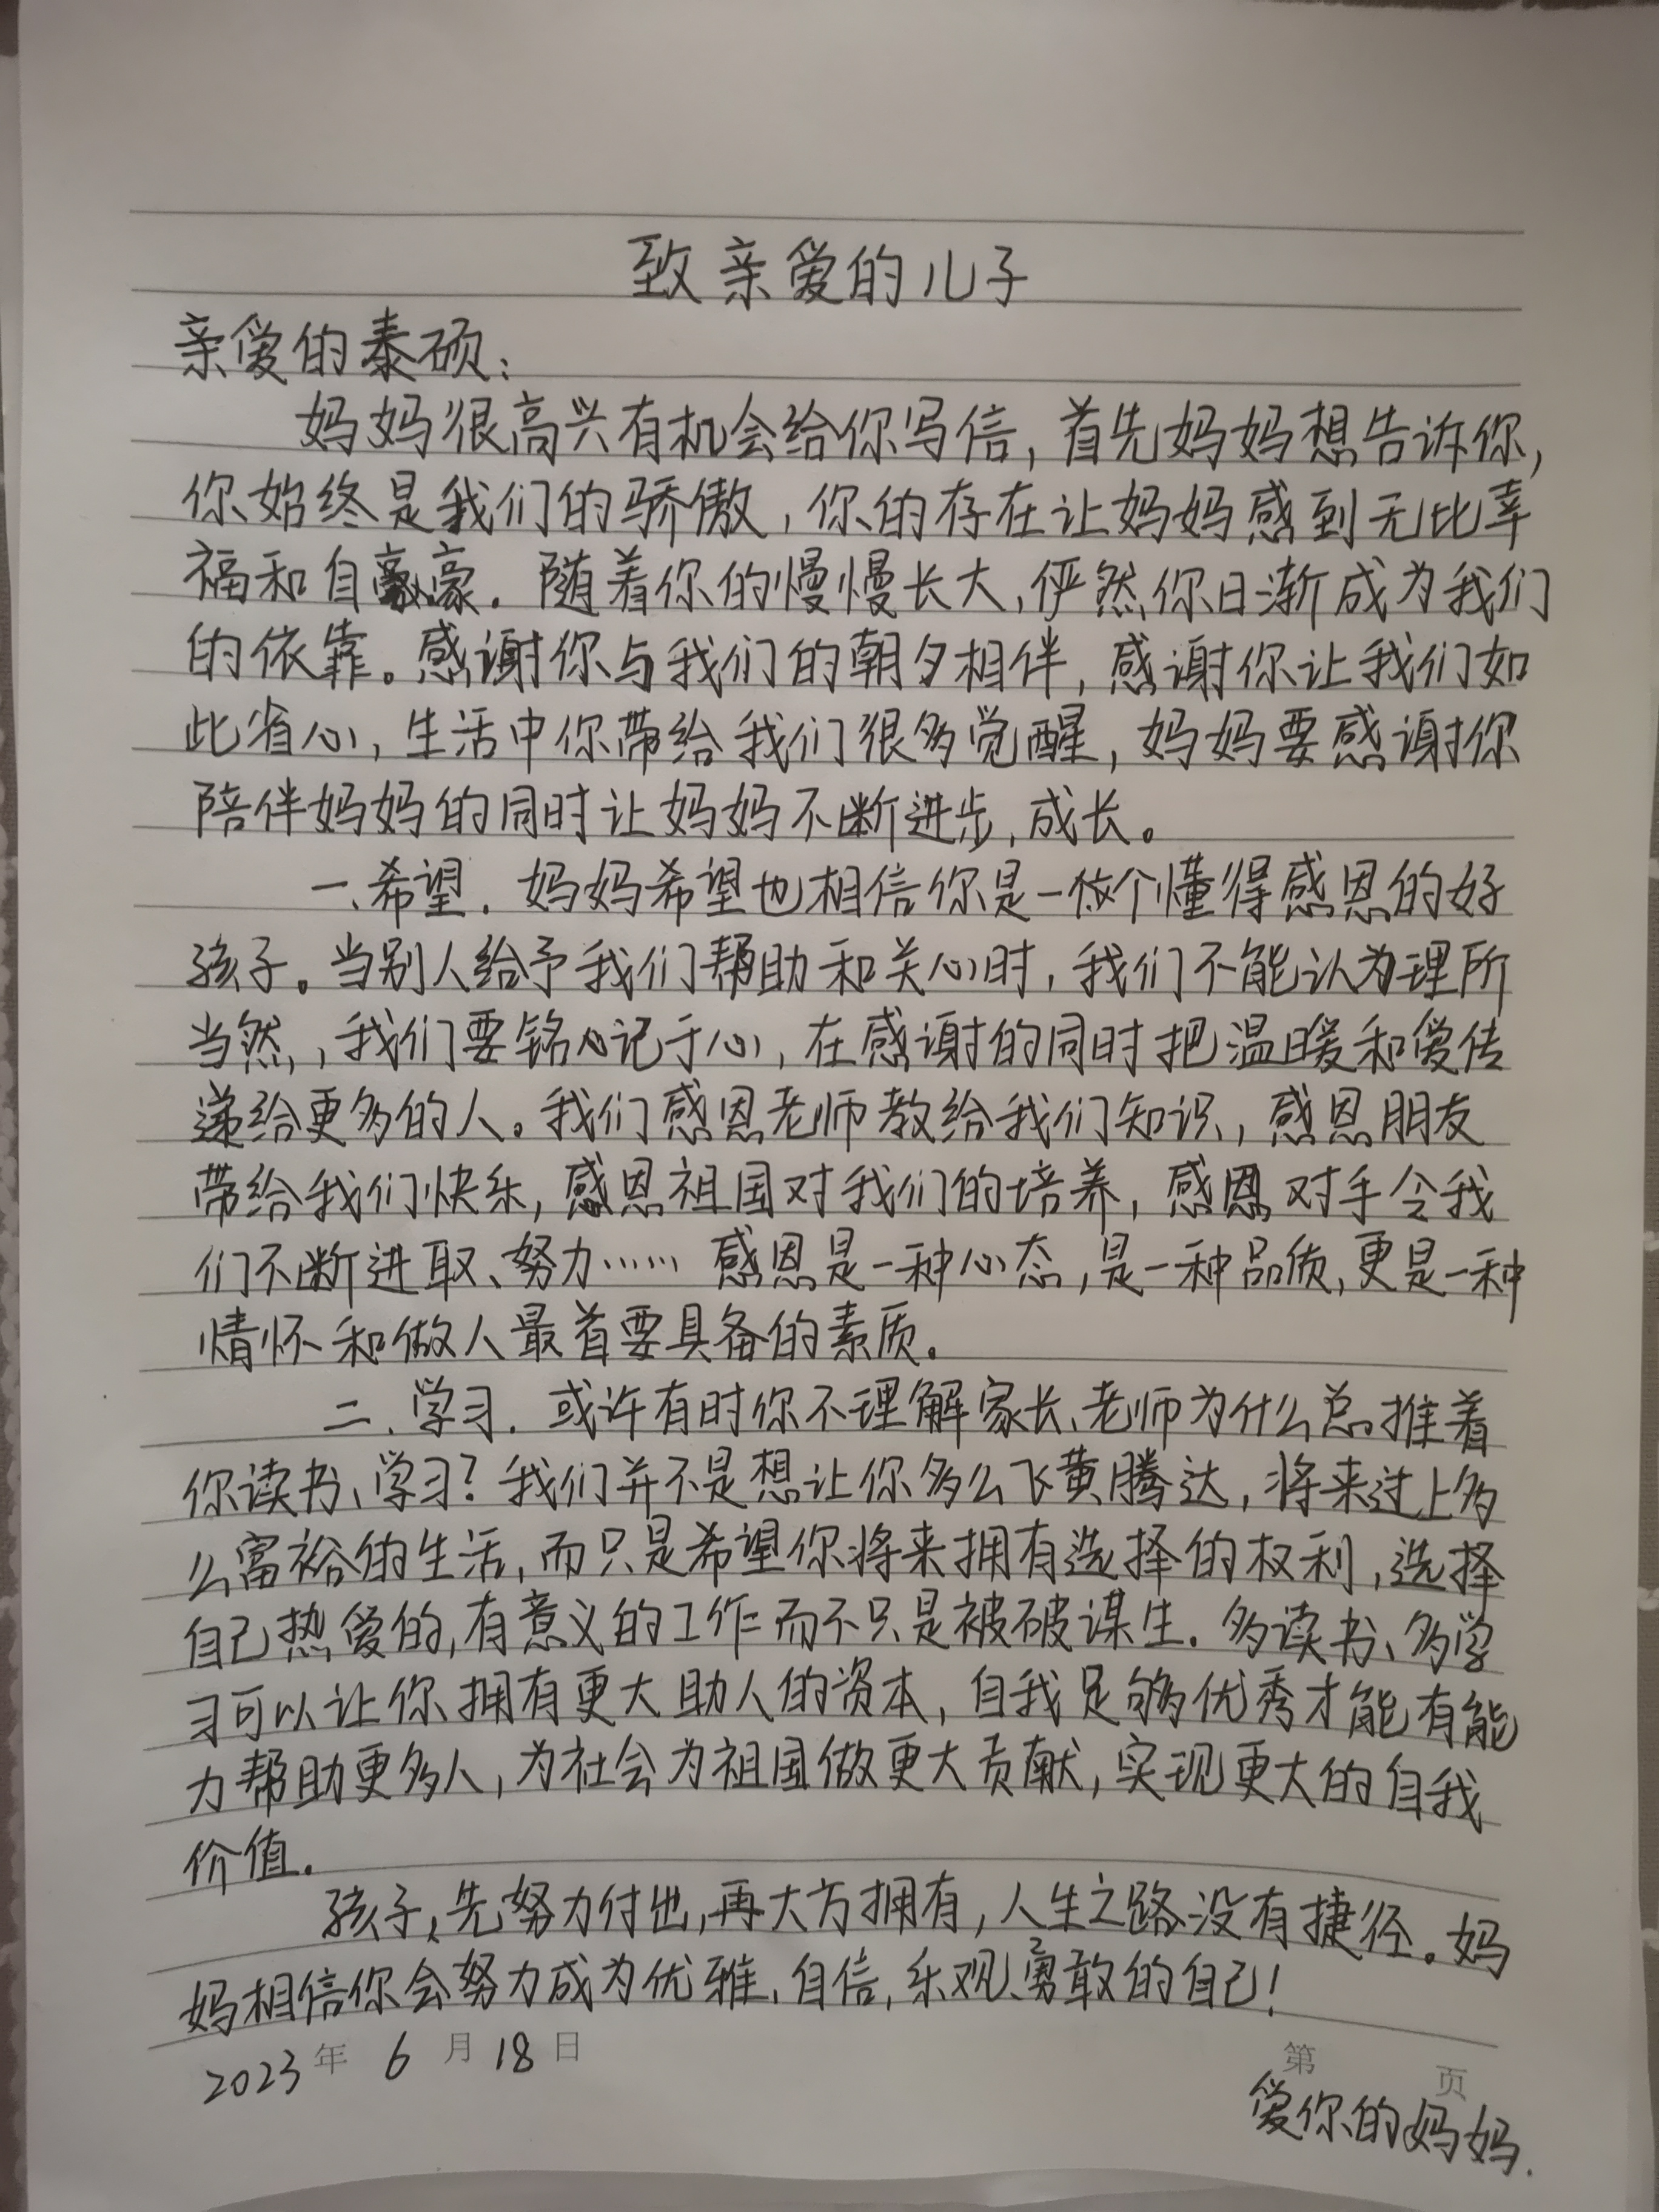 致亲爱的儿子
亲爱的泰硕:
妈妈很高兴有机会给你写信,首先妈妈想告诉你,
你始终是我们的骄傲,你的存在让妈妈感到无比幸
福和自豪.随着你的慢慢长大,俨然你日渐成为我们
的依靠。感谢你与我们的朝夕相伴,感谢你让我们如
此省心,生活中你带给我们很多觉醒,妈妈要感谢你
陪伴妈妈的同时让妈妈不断进步,成长。
一、希望.妈妈希望也相信你是一个懂得感恩的好
孩子。当别人给予我们帮助和关心时,我们不能认为理所
当然,,我们要铭心记于心,在感谢的同时把温暖和爱传
递给更多的人。我们感恩老师教给我们知识,感恩朋友
带给我们快乐,感恩祖国对我们的培养,感恩对手令我
们不断进取、努力……感恩是一种心态,是一种品质,更是一种
情怀和做人最首要具备的素质。
二.学习.或许有时你不理解家长、老师为什么总推着
你读书、学习?我们并不是想让你多么飞黄腾达,将来过上多
么富裕的生活,而只是希望你将来拥有选择的权利,选择
自己热爱的,有意义的工作而不只是被破谋生.多读书、多学
习可以让你拥有更大助人的资本,自我足够优秀才能有能
力帮助更多人,为社会为祖国做更大贡献,实现更大的自我
价值.
孩子,先努力付出,再大方拥有,人生之路没有捷径。妈
妈相信你会努力成为优雅、自信,乐观、勇敢的自己!
2023年 6月18日
第 页
爱你的妈妈.